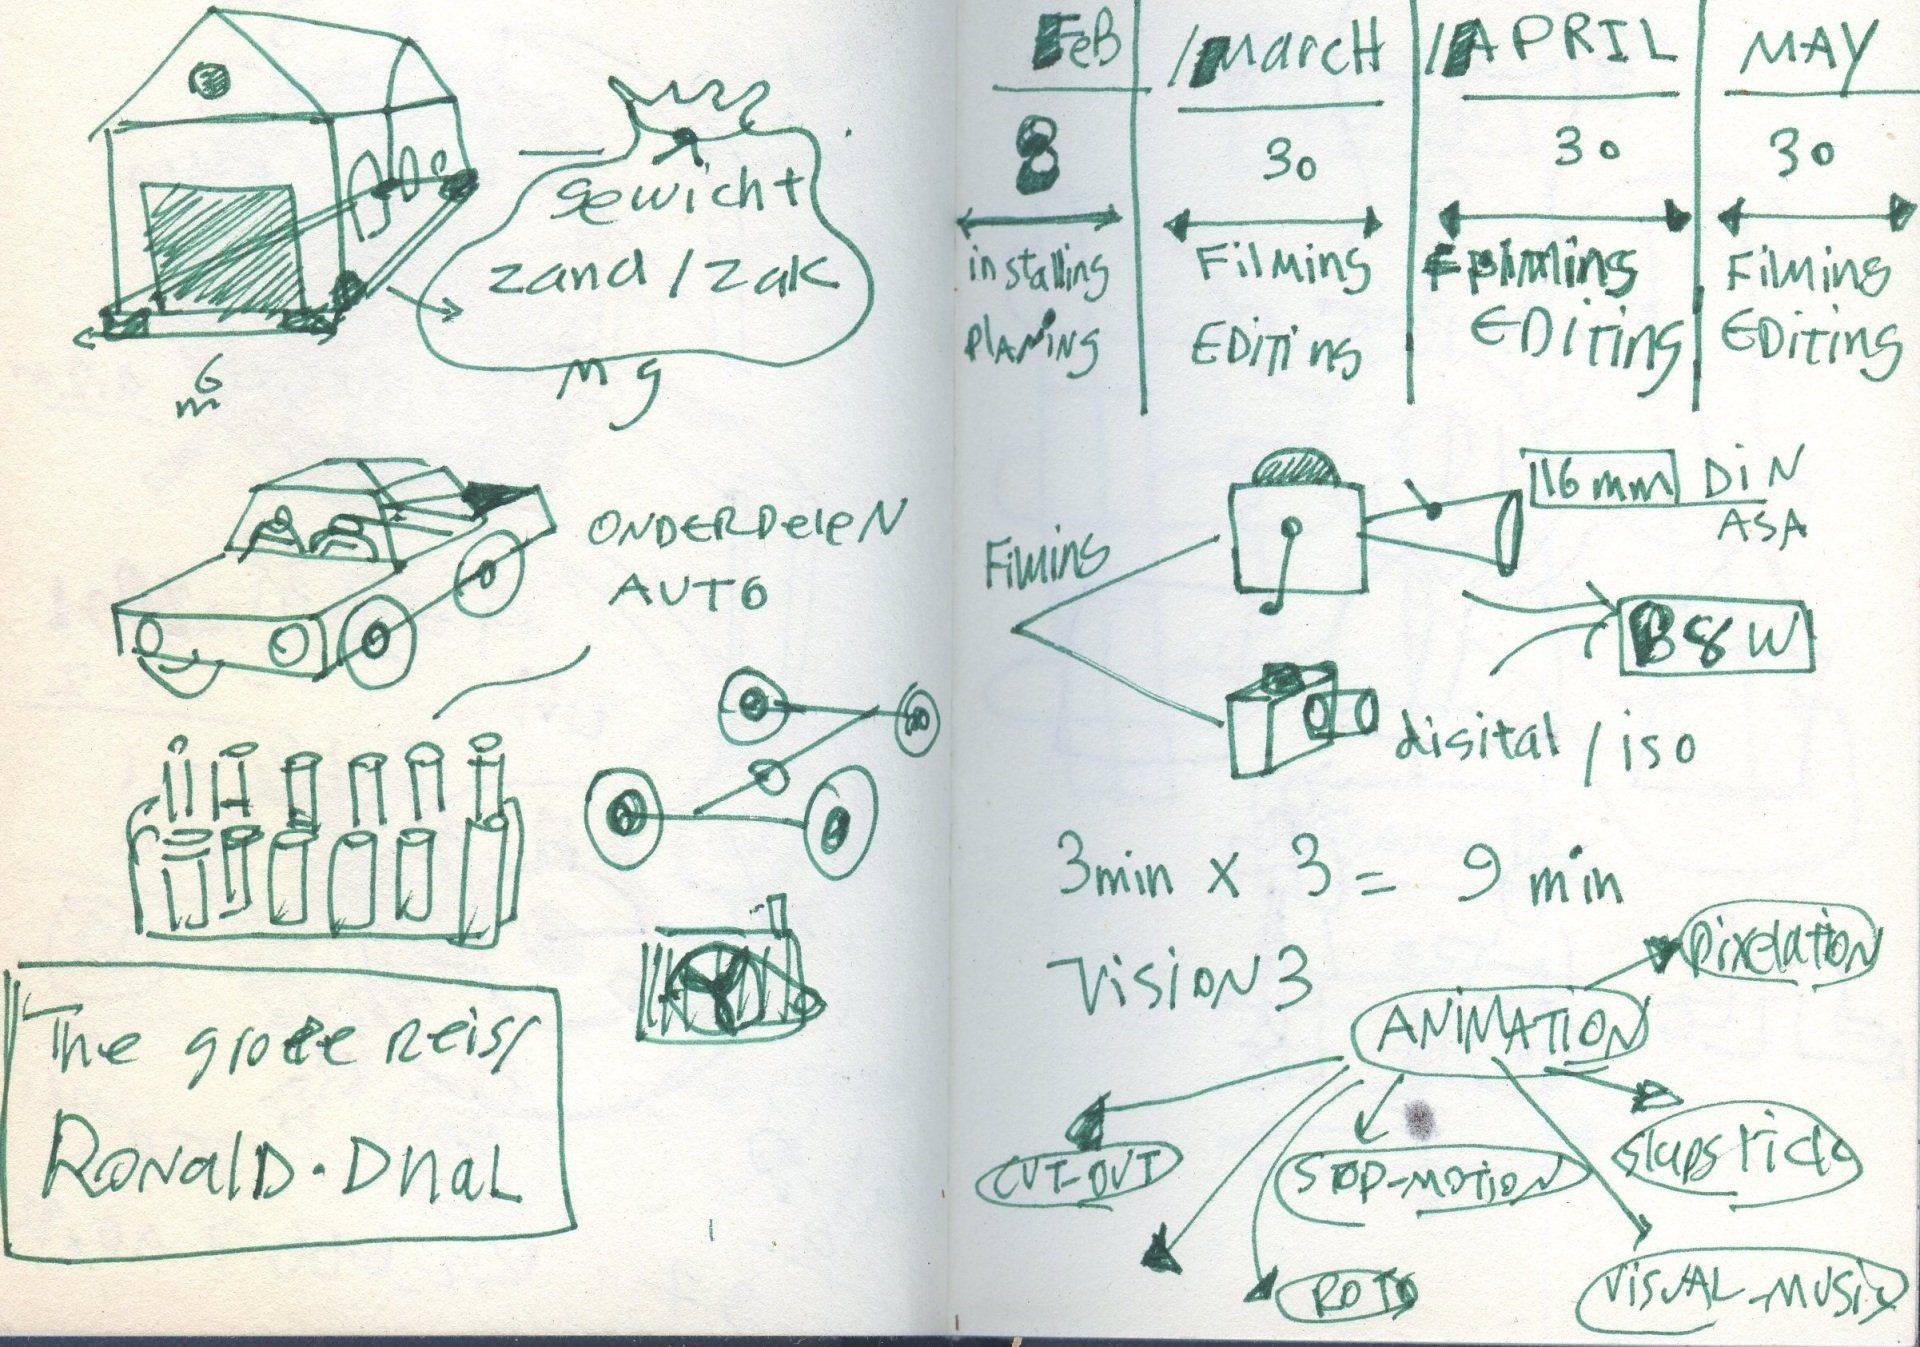 gewicht
zand / zak
Mg
6
m
ONDERDELEN
AUTO
The grote reis
RONALD. DNAL
FEB
MARCH
APRIL
MAY
8
30
30
30
installing
planing
Filming
EDITING
Filming
EDITING
Filming
EDITING
Filming
16 mm DIN
ASA
B & W
digital / iso
3min x 3 = 9 min
VISION 3
pixelation
ANIMATION
CUT-OUT
STOP-MOTION
Slapstick
ROTO
VISUAL-MUSIC